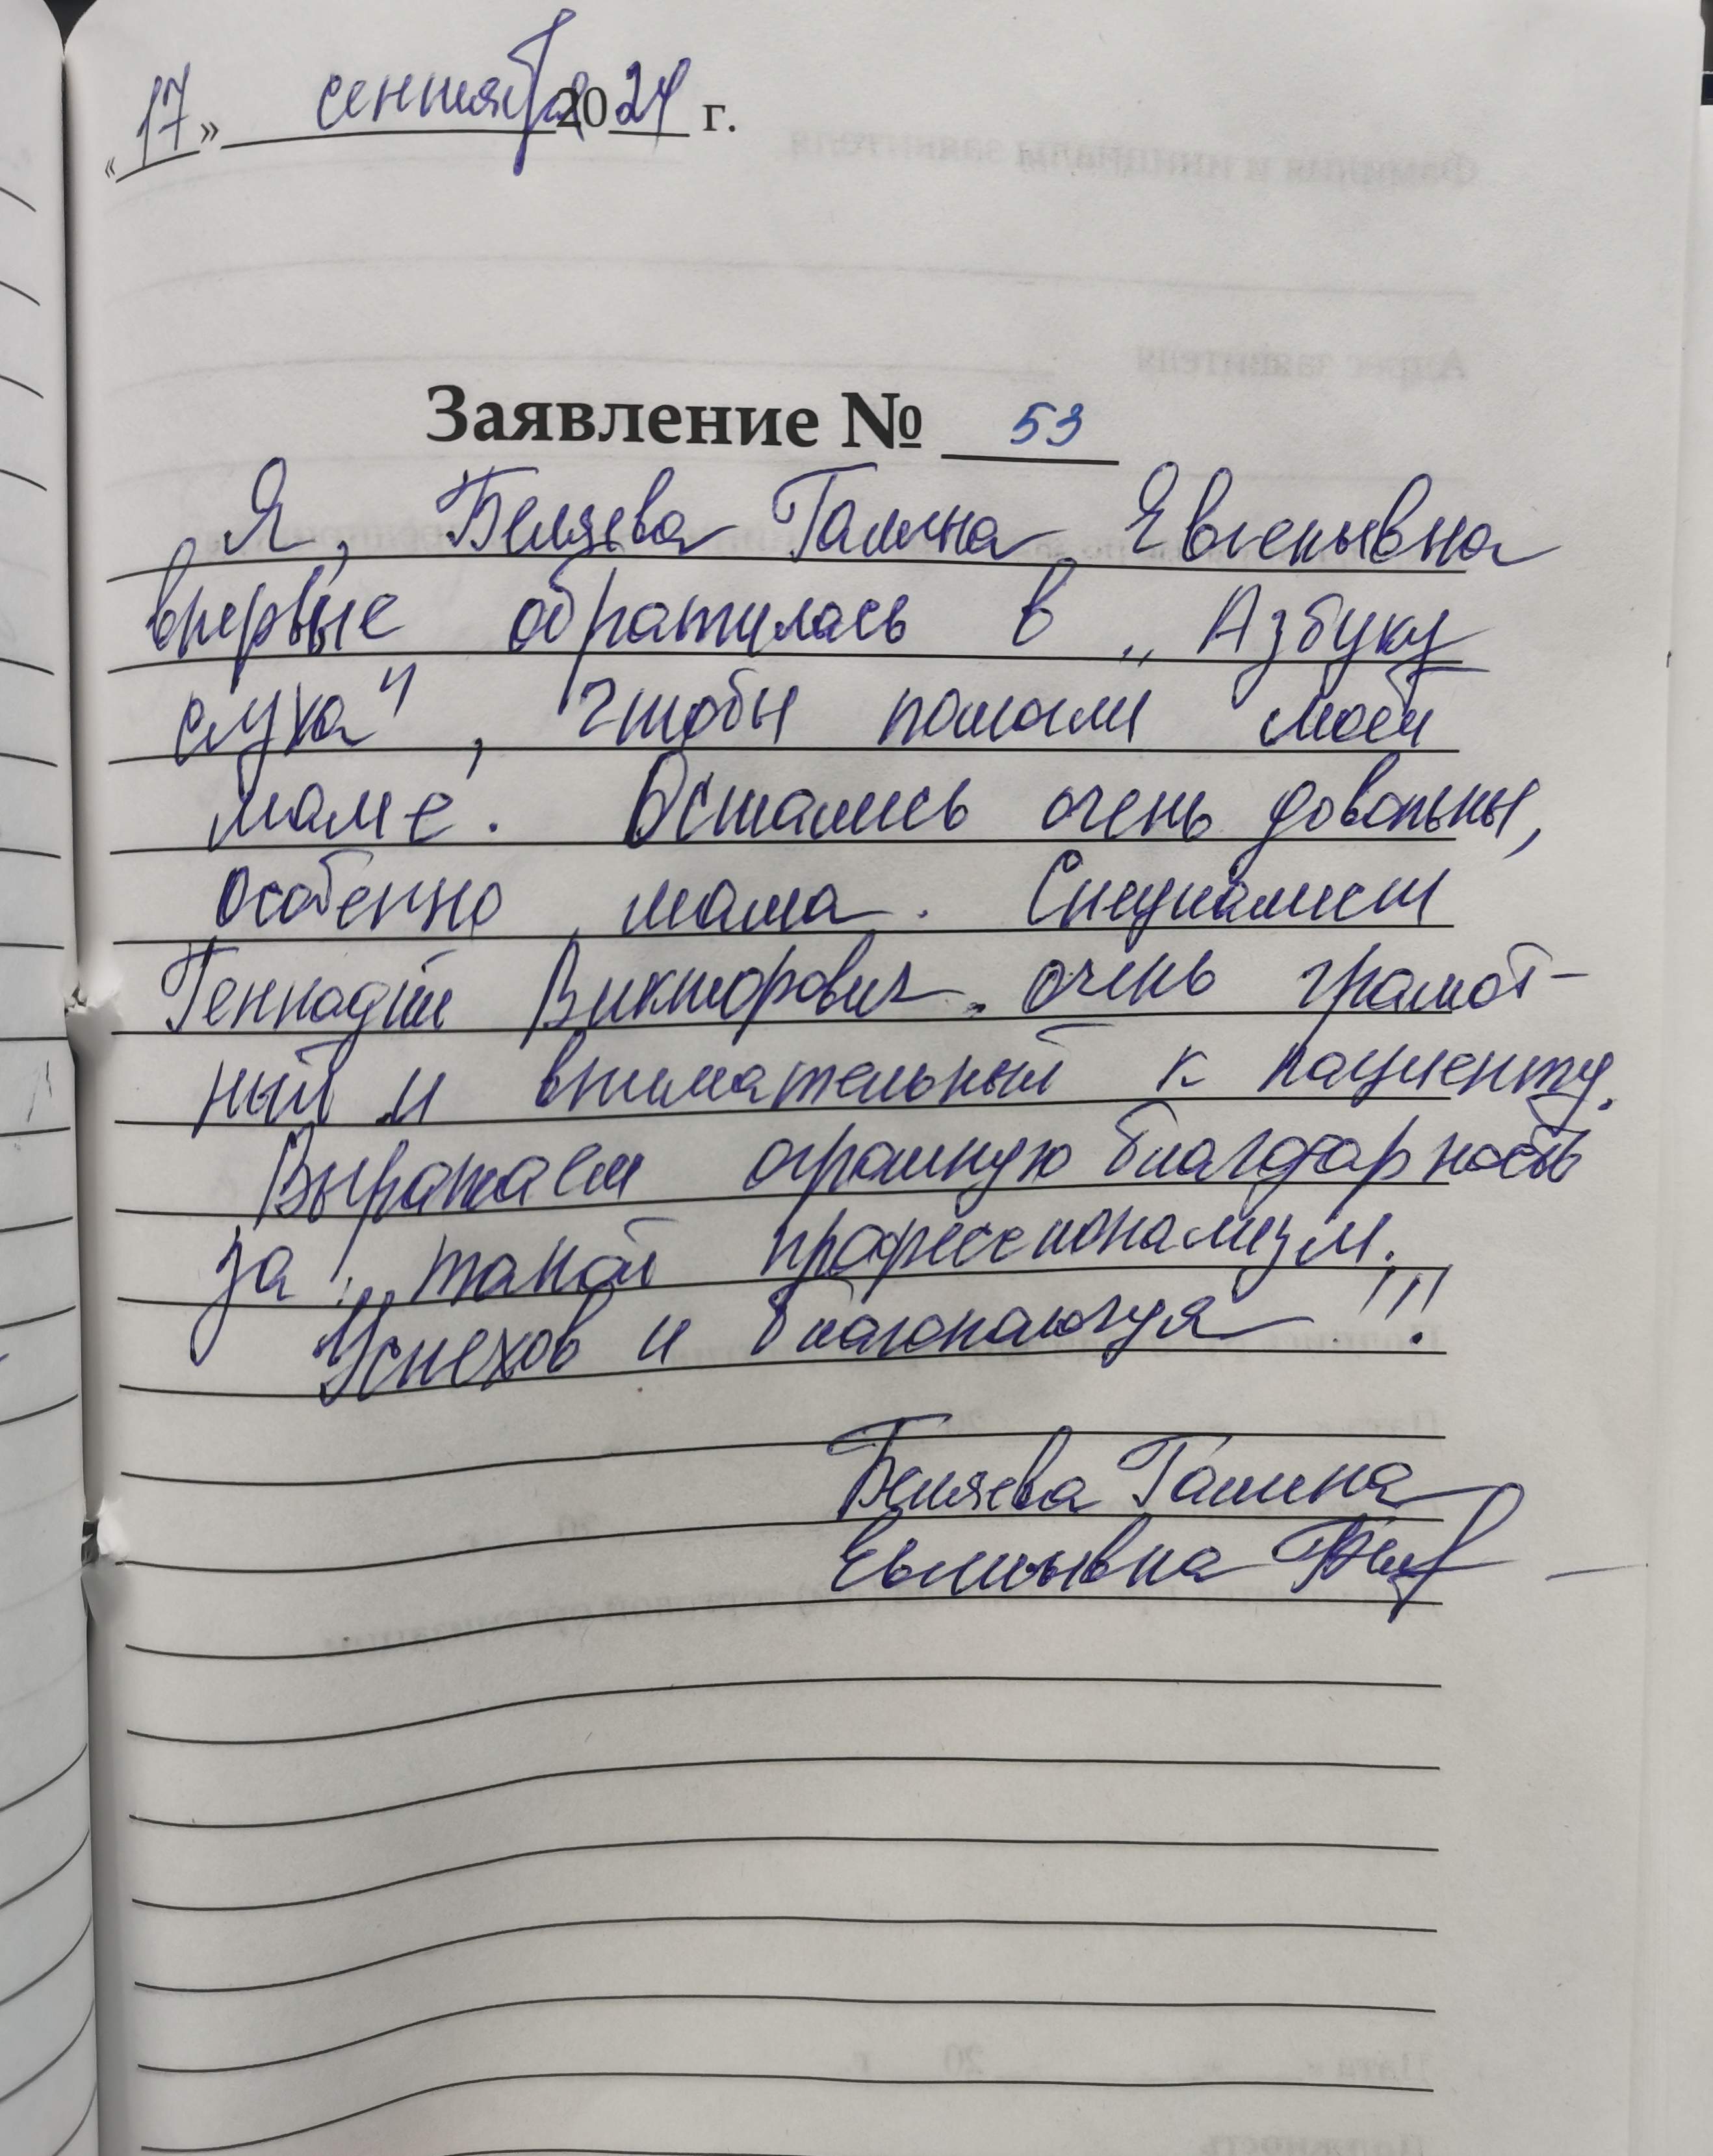 « 17 » сентября 2024 г.
Заявление № 53
Я, Беляева Галина Евгеньевна
впервые обратилась в „Азбуку
слуха", чтобы помогли моей
маме. Остались очень довольны,
особенно мама. Специалист
Геннадий Викторович очень грамот-
ный и внимательный к пациенту.
Выражаем огромную благодарность
за такой профессионализм.
Успехов и благополучия!!!
Беляева Галина
Евгеньевна